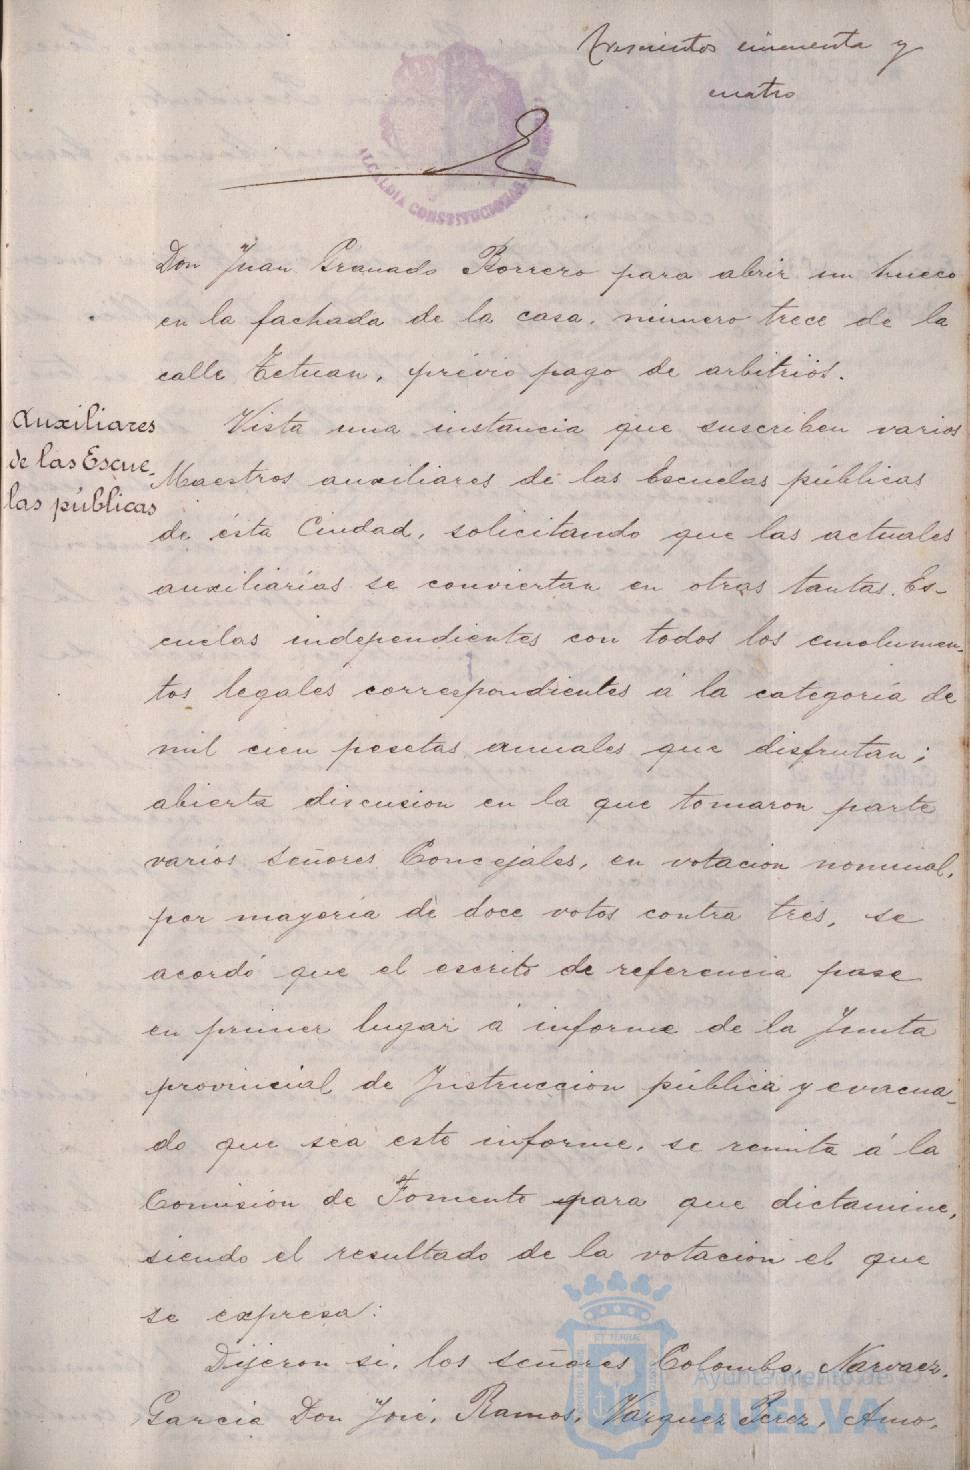 Trescientos cincuenta y
cuatro
ALCALDIA CONSTITUCIONAL DE
Don Juan Granado Borrero para abrir un hueco
en la fachada de la casa, número trece de la
calle Tetuan, prévio pago de arbitrios.
Auxiliares
de las Escue-
las públicas
Vista una instancia que suscriben varios
Maestros auxiliares de las Escuelas públicas
de ésta Ciudad, solicitando que las actuales
auxiliarías se conviertan en otras tantas Es-
cuelas independientes con todos los emolumen-
tos legales correspondientes á la categoría de
mil cien pesetas anuales que disfrutan;
abierta discusion en la que tomaron parte
varios señores Concejales, en votacion nominal,
por mayoría de doce votos contra tres, se
acordó que el escrito de referencia pase
en primer lugar á informe de la Junta
provincial de Instruccion pública y evacua-
do que sea este informe, se remita á la
Comision de Fomento para que dictamine,
siendo el resultado de la votacion el que
se expresa:
Dijeron si, los señores Colombo, Narvaez,
Garcia Don José, Ramos, Vazquez Perez, Amo,
Ayuntamiento de
HUELVA